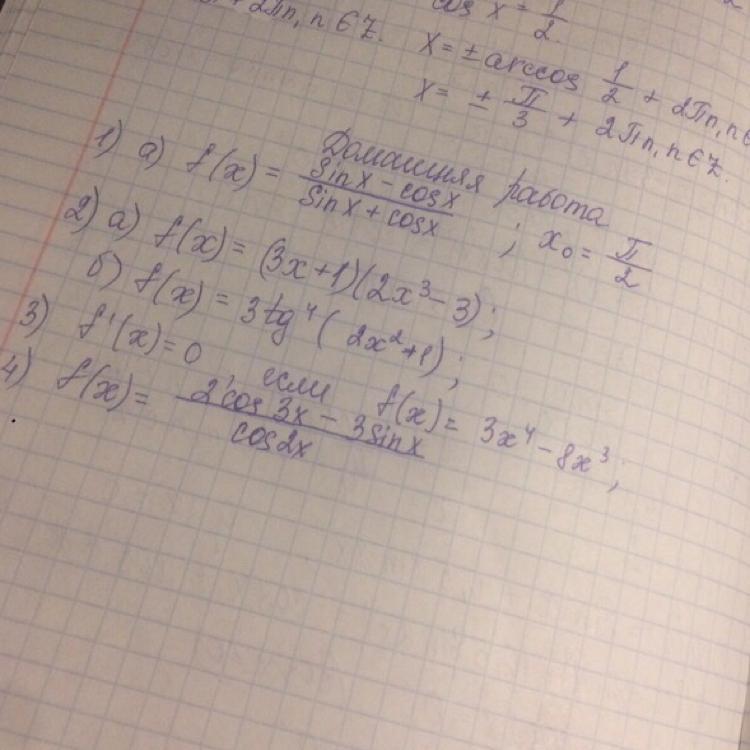 + 2πn, n ∈ Z.
cos x = 1/2.
x = ± arccos 1/2 + 2πn, n ∈
x = ± π/3 + 2πn, n ∈ Z.
Домашняя работа
1) а) f(x) = (sin x - cos x)/(sin x + cos x) ; x₀ = π/2
2) а) f(x) = (3x+1)(2x³-3);
б) f(x) = 3tg⁴(2x²+1);
3) f'(x) = 0 если f(x) = 3x⁴ - 8x³;
4) f(x) = (2cos 3x - 3sin x)/(cos 2x)